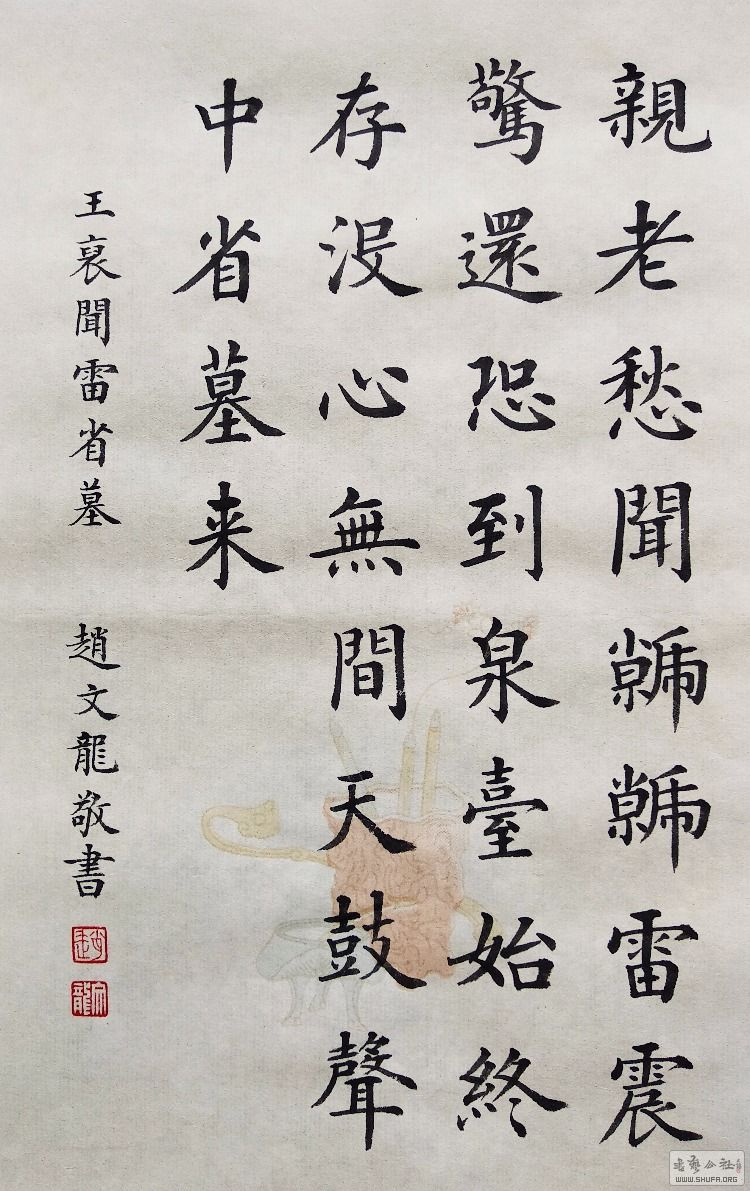 親老愁聞虩虩雷震
驚還恐到泉臺始終
存没心無間天鼓聲
中省墓来
王裒聞雷省墓 趙文龍敬書
趙
文龍
書藝公社
WWW.SHUFA.ORG